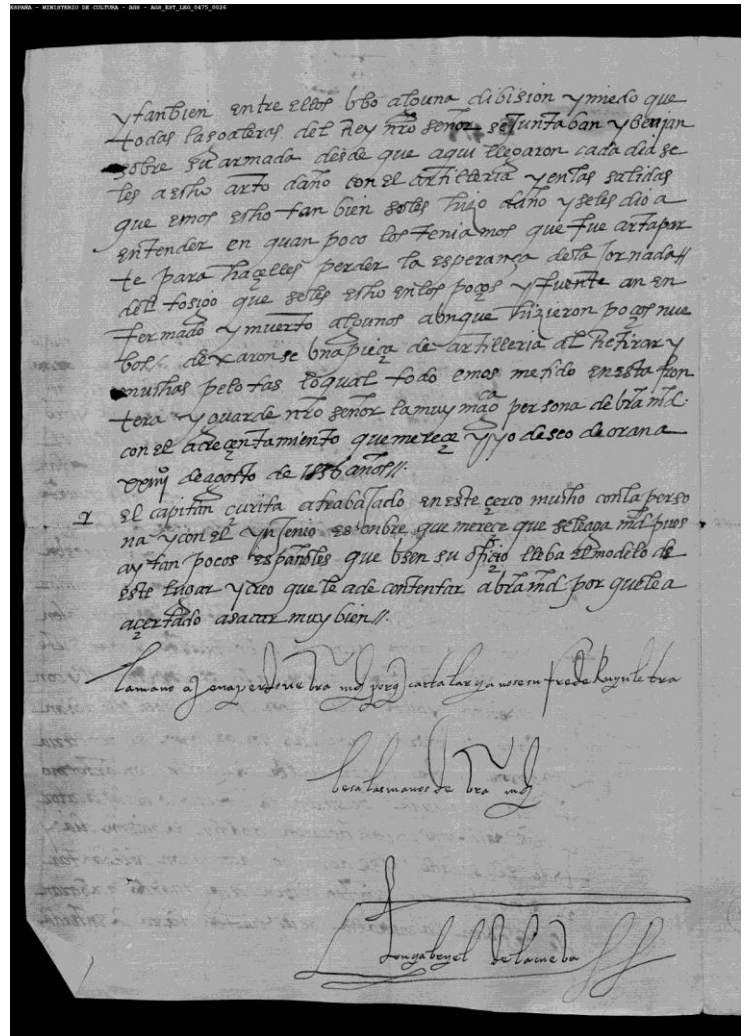 ESPAÑA - MINISTERIO DE CULTURA - AGS - AGS_EST_LEG_0475_0026
y tanbien entre ellos vbo alguna dibision y miedo que
todas las galeras del Rey nro señor se Juntaban y Benjan
sobre su armada desde que aqui llegaron cada dia se
les a esho arto daño con el artilleria y en las salidas
que emos esho tan bien se les hizo daño y se les dio a
entender en quan poco los teniamos que fue arta par
te para hazelles perder la esperança de la Jornada //
del tosigo que se les esho en los poços y fuente an en
fermado y muerto algunos abnque hizieron poços nue
bos // dexaronse bna pieça de artilleria al Retirar y
mushas pelotas lo qual todo emos metido en esta fron
tera y guarde nro señor la muy magca persona de bra md
con el acreçentamiento que mereçe y yo deseo de oran a
xxiiij de agosto de 1556 años //.
El capitan curita a trabaJado en este çerco musho con la perso
na y con el ynJenio es onbre que mereçe que se le aga md pues
ay tan pocos españoles que bsen su ofiçio lleba el modelo de
este lugar y creo que le a de contentar a bra md por que le a
açertado a sacar muy bien //.
la mano aJena perdone bra md porq carta larga no se sufre de Ruyn letra
besa las manos de bra md
don gabryel de la cueba